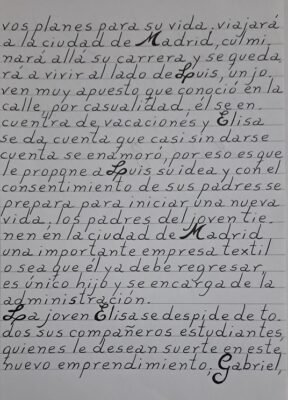 vos planes para su vida, viajará
a la ciudad de Madrid, culmi
nará allá su carrera, y se queda
rá a vivir al lado de Luis, un jo
ven muy apuesto que conoció en la
calle, por casualidad, él se en
cuentra de vacaciones y Elisa
se da cuenta que casi sin darse
cuenta se enamoró, por eso es que
le propone a Luis su idea y con el
consentimiento de sus padres se
prepara para iniciar una nueva
vida, los padres del joven tie
nen en la ciudad de Madrid
una importante empresa textil
o sea que él ya debe regresar,
es único hijo y se encarga de la
administración.
La joven Elisa se despide de to
dos sus compañeros estudiantes,
quienes le desean suerte en este
nuevo emprendimiento, Gabriel,